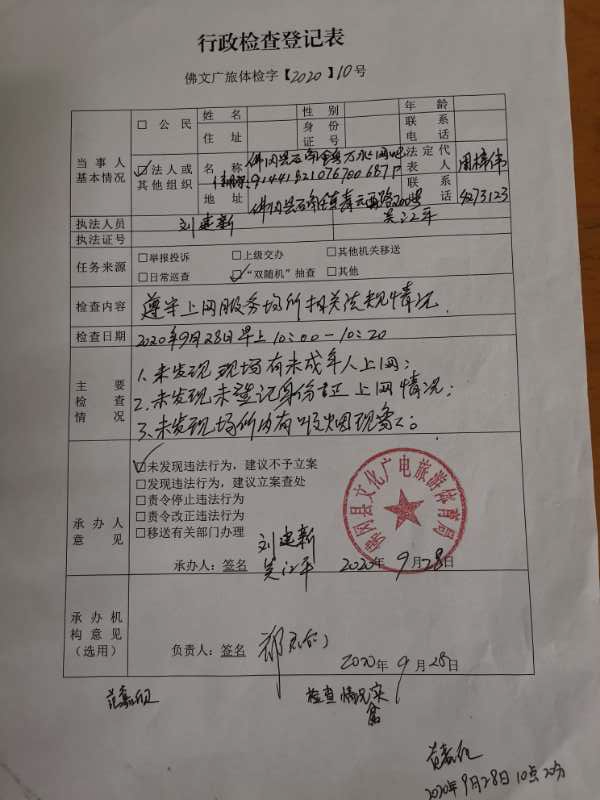 行政检查登记表
佛文广旅体检字【2020】10号
当事人基本情况
□公民 姓名 性别 年龄
住址 身份证号 联系电话
☑法人或其他组织 名称 佛冈县石角镇 上网吧 法定代表人 周梓伟
91441821076700687P
地址 佛冈县石角镇 联系电话 4273123
执法人员 刘建新 吴江平
执法证号
任务来源 □举报投诉 □上级交办 □其他机关移送
□日常巡查 ☑“双随机”抽查 □其他
检查内容 遵守上网服务场所相关法规情况
检查日期 2020年9月28日早上10:00-10:20
主要检查情况
1.未发现现场有未成年人上网;
2.未发现未登记身份证上网情况;
3.未发现场所内有吸烟现象。
承办人意见
☑未发现违法行为，建议不予立案
□发现违法行为，建议立案查处
□责令停止违法行为
□责令改正违法行为
□移送有关部门办理
佛冈县文化广电旅游体育局
承办人：签名 刘建新 吴江平 2020年9月28日
承办机构意见（选用）
负责人：签名
2020年9月28日
检查情况实
2020年9月28日10点20分